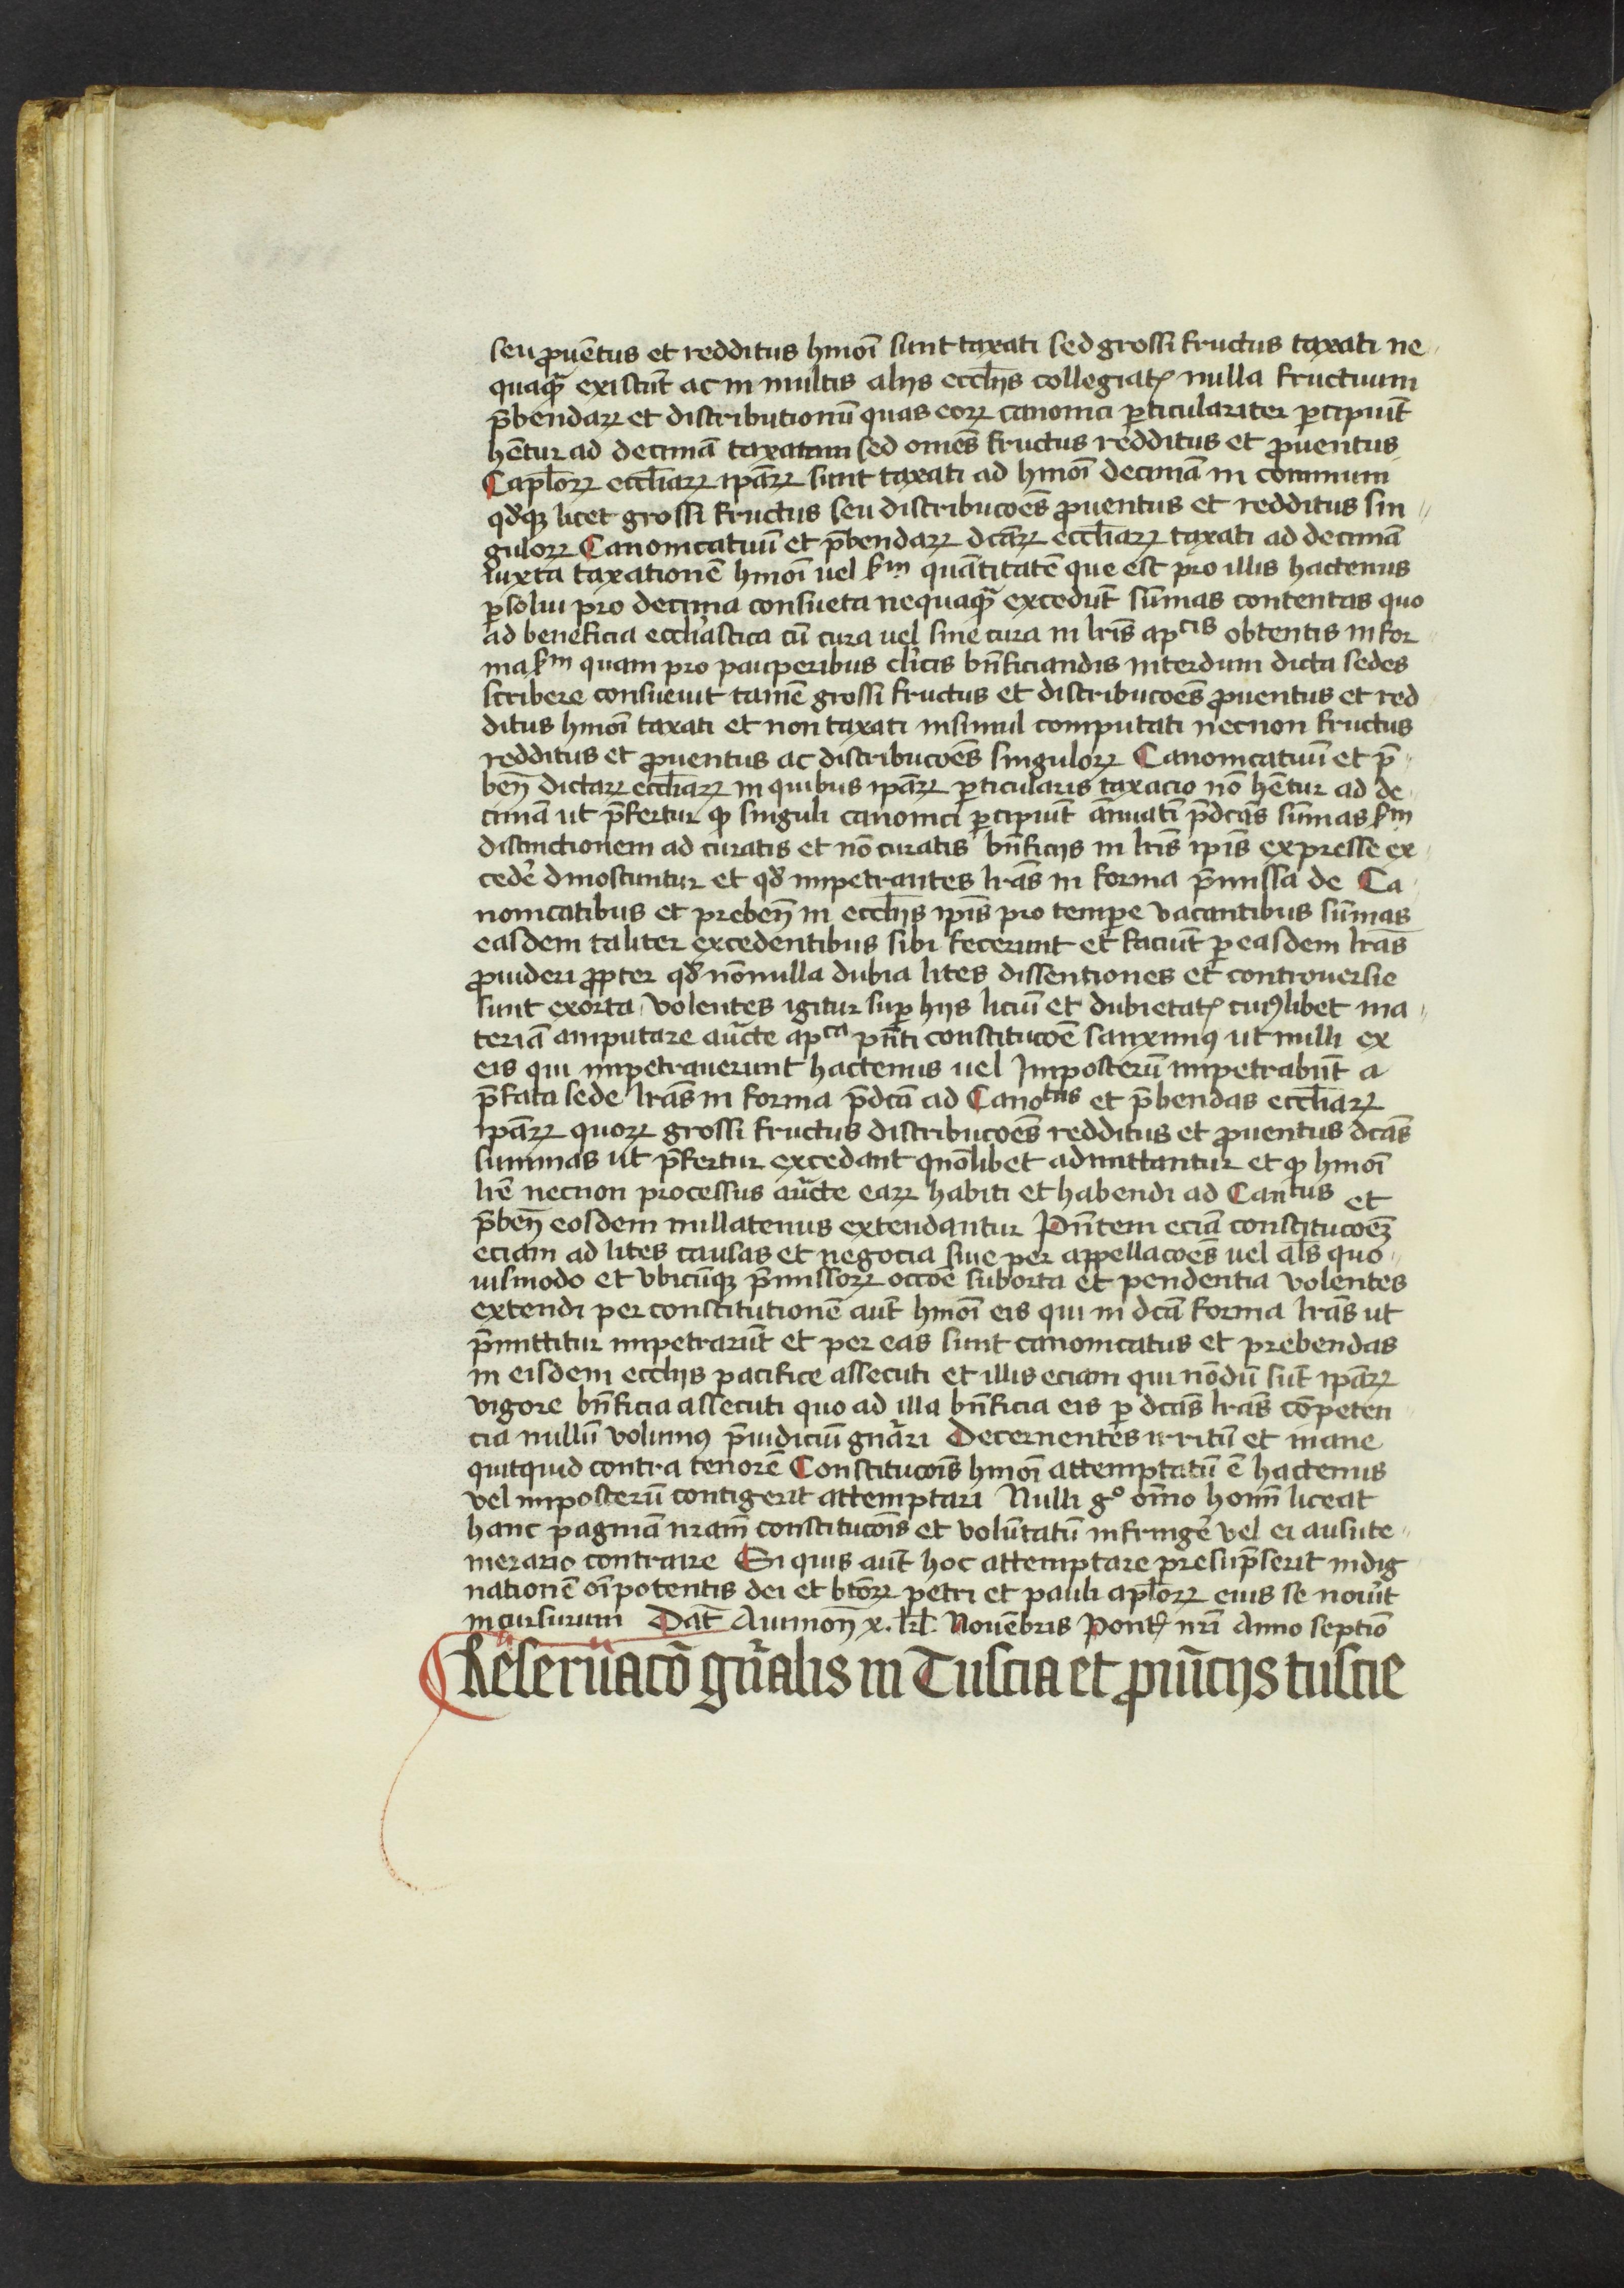 seu ꝓuētus et redditus hmōi sunt taxati sed grossi fructus taxati ne
quaqͣ existūt ac in multis alijs eccl̄ijs collegiatꝭ nulla fructuum
p̄bendaꝝ et distributionū quas eoꝝ canonici ꝑticulariter ꝑcipiūt
hēntur ad decimā taxatam sed om̄es fructus redditus et ꝓuentus
Capl̄oꝝ eccl̄iaꝝ ip̄aꝝ sunt taxati ad hmōi decimā in communi
qd̓qꝫ licet grossi fructus seu distribucōes ꝓuentus et redditus sin
guloꝝ Canonicatuū et p̄bendaꝝ dc̄aꝝ eccl̄iaꝝ taxati ad decimā
iuxta taxationē hmōi uel ẜm quātitatē que est pro illis hactenus
ꝑsolui pro decima consueta nequaqͣ excedūt sūmas contentas quo
ad beneficia eccl̓iastica cū cura uel sine cura in lr̄is apᶜⁱˢ obtentis in for
ma ẜm quam pro pauperibus cl̓icis bn̄ficiandis interdum dicta sedes
scribere consueuit tamē grossi fructus et distribucōes ꝓuentus et red
ditus hmōi taxati et non taxati insimul computati necnon fructus
redditus et ꝓuentus ac distribucōes singuloꝝ Canonicatuū et p̄
ben̄ dictaꝝ eccl̄iaꝝ in quibus ip̄aꝝ ꝑticularis taxacio nō hētur ad de
cimā ut p̄fertur qͥ singuli canonici ꝑcipiūt ānuatī p̄dc̄as sūmas ẜm
distinctionem ad curatis et nō curatis bn̄ficijs in lr̄is ip̄is expresse ex
ceder̓ dinoscuntur et qd̓ impetrantes lr̄as in forma p̄missa de Ca
nonicatibus et preben̄ in eccl̄ijs ip̄is pro tempe vacantibus sūmas
easdem taliter excedentibus sibi fecerunt et faciūt ꝑ easdem lr̄as
ꝓuideri ꝓpter qd̓ nōnulla dubia lites dissentiones et controuersie
sunt exorta volentes igitur suꝑ hijs liciū et dubietatꝭ cuiꝰlibet ma
teriā amputare auc̄te apᶜᵃ pn̄ti constitucōe sanximꝰ ut nulli ex
eis qui impetrauerunt hactenus uel Imposterū impetrabūt a
p̄fata sede lr̄as in forma p̄dc̄a ad Canoᵗᵘˢ et p̄bendas eccl̄iaꝝ
ip̄aꝝ quoꝝ grossi fructus distribucōes redditus et ꝓuentus dc̄as
summas ut p̄fertur excedant quōlibet admittantur et qͥ hmōi
lr̄e necnon processus auc̄te eaꝝ habiti et habendi ad Canᵗᵘˢ et
p̄ben̄ eosdem nullatenus extendantur Pn̄tem eciā constitucoēꝫ
eciam ad lites causas et negocia siue per appellacoēs uel al̄s quo
uismodo et vbicūqꝫ p̄missoꝝ occōe suborta et pendentia volentes
extendi per constitutionē aūt hmōi eis qui in dc̄a forma lr̄as ut
p̄mittitur impetrarūt et per eas sunt canonicatus et prebendas
in eisdem eccl̄ijs pacifice assecuti et illis eciam qui nōdū sūt ip̄aꝝ
vigore bn̄ficia assecuti quo ad illa bn̄ficia eis ꝑ dc̄as lr̄as cōpeten
cia nullū volumꝰ p̄iudiciū gn̄ari Decernentes irritū et inane
quitquid contra tenorē Constitucōis hmōi attemptatū ē hactenus
vel imposterū contigerit attemptari Nulli gͦ om̄o homī liceat
hanc paginā nr̄am constitucōis et volūtatū infringer̓ vel ei ausu te
merario contraire Si quis aūt hoc attemptare presūpserit indig
nationē oīpotentis dei et btōꝝ petri et pauli apl̄oꝝ eius se nouit̓
incursurum Dat̄ Auinion̄ x. kl̄. Nouēbris Pontꝭ nr̄i Anno septīo
Reseruacō gn̄alis in Tuscia et ꝓuīcijs tuscie